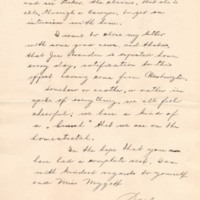 and in                      that she is
able, through a lawyer, to get an
interview with him.
I want to close my letter
with some good news, and that is,
that Joe                 is expected home
every day, notification to this
effect having come from Washington.
Somehow or another, or rather in
spite of everything, we all feel
cheerful; we have a kind of
a "hunch" that we are on the
homestretch.
In the hope that you
have had a complete rest, I am
with kindest regards to yourself
and Miss